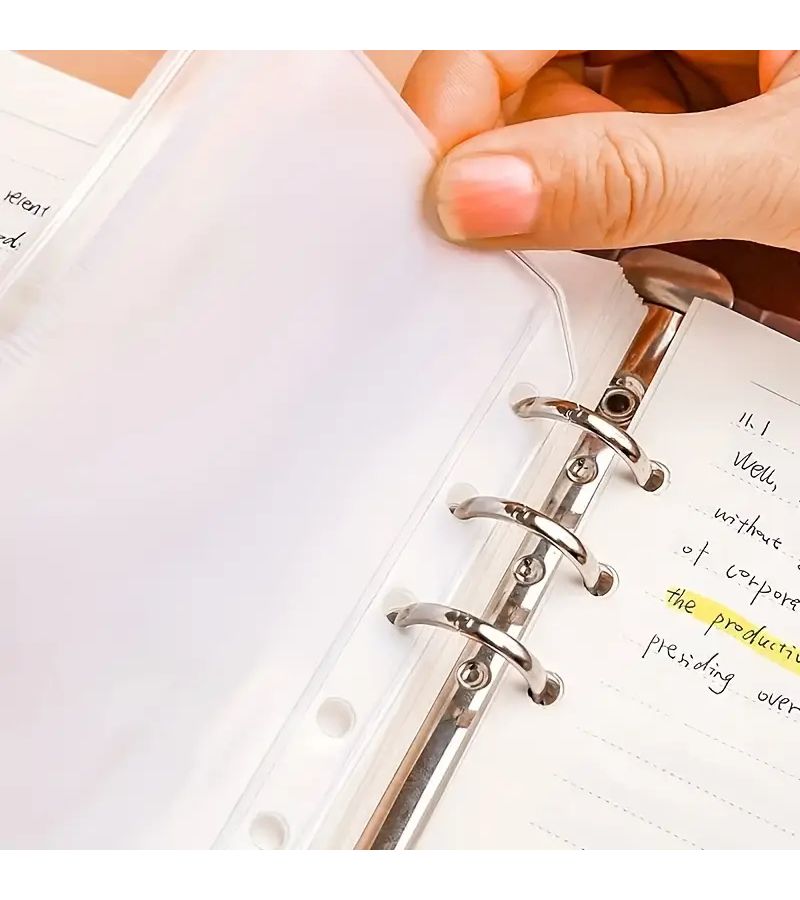 recent
ed.
11.1
Well,
without
of corpora
the producti
presiding over